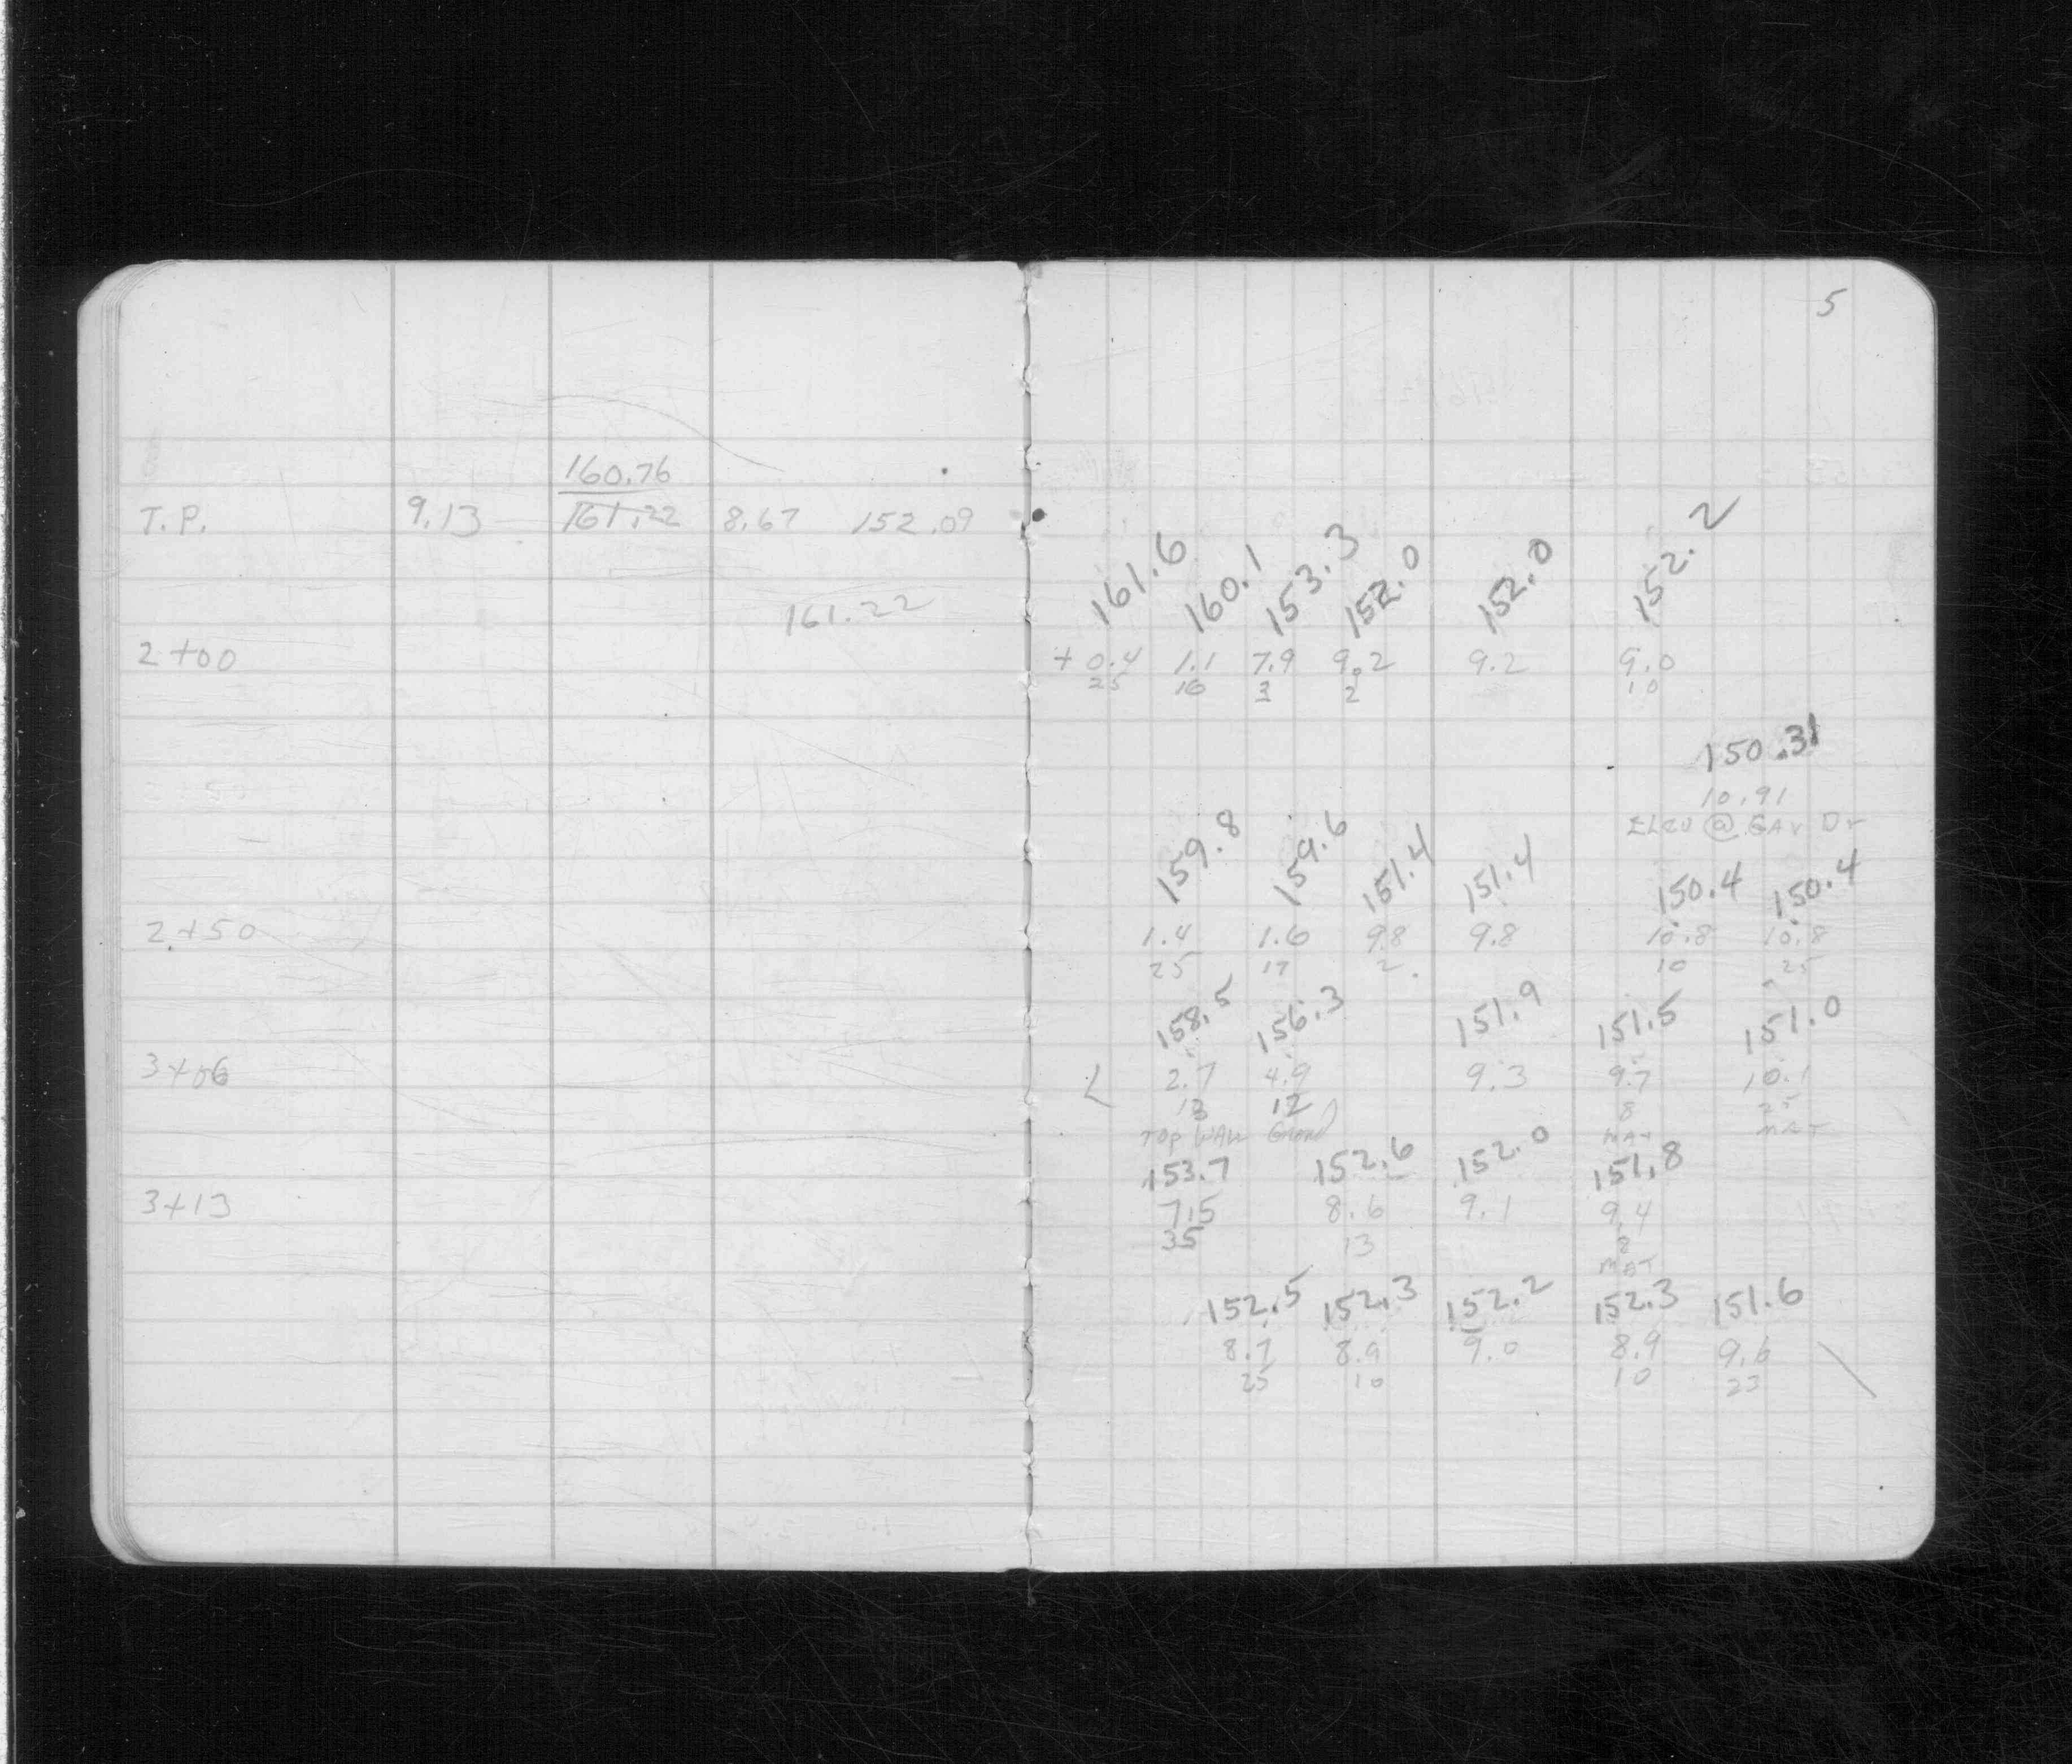 5
160.76
T.P. 9.13 161.22 8.67 152.09
161.22
161.6 160.1 153.3 152.0 152.0 152.2
2+00 +0.4 1.1 7.9 9.2 9.2 9.0
25 16 3 2 10
150.31
10.91
Elev @ GAr Dr
159.8 159.6 151.4 151.4 150.4 150.4
2+50 1.4 1.6 9.8 9.8 10.8 10.8
25 17 2 10 25
158.5 156.3 151.9 151.5 151.0
3+06 2.7 4.9 9.3 9.7 10.1
13 12 8 25
TOP WALL Ground MAT MAT
153.7 152.6 152.0 151.8
3+13 7.5 8.6 9.1 9.4
35 13 8
MAT
152.5 152.3 152.2 152.3 151.6
8.7 8.9 9.0 8.9 9.6
25 10 10 23